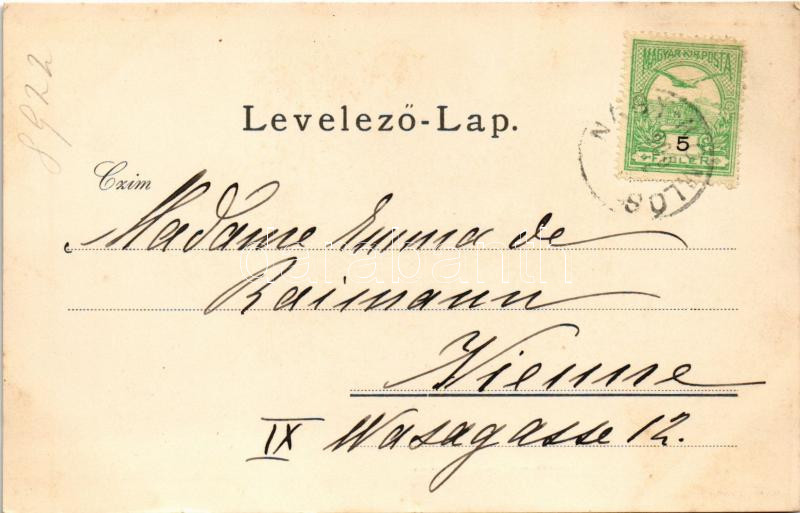 8922
MAGYAR KIR. POSTA
5
FILLÉR
Levelező-Lap.
Czim
Madame Emma de
Raimann
Vienne
IX Wasagasse 12.
darabanth